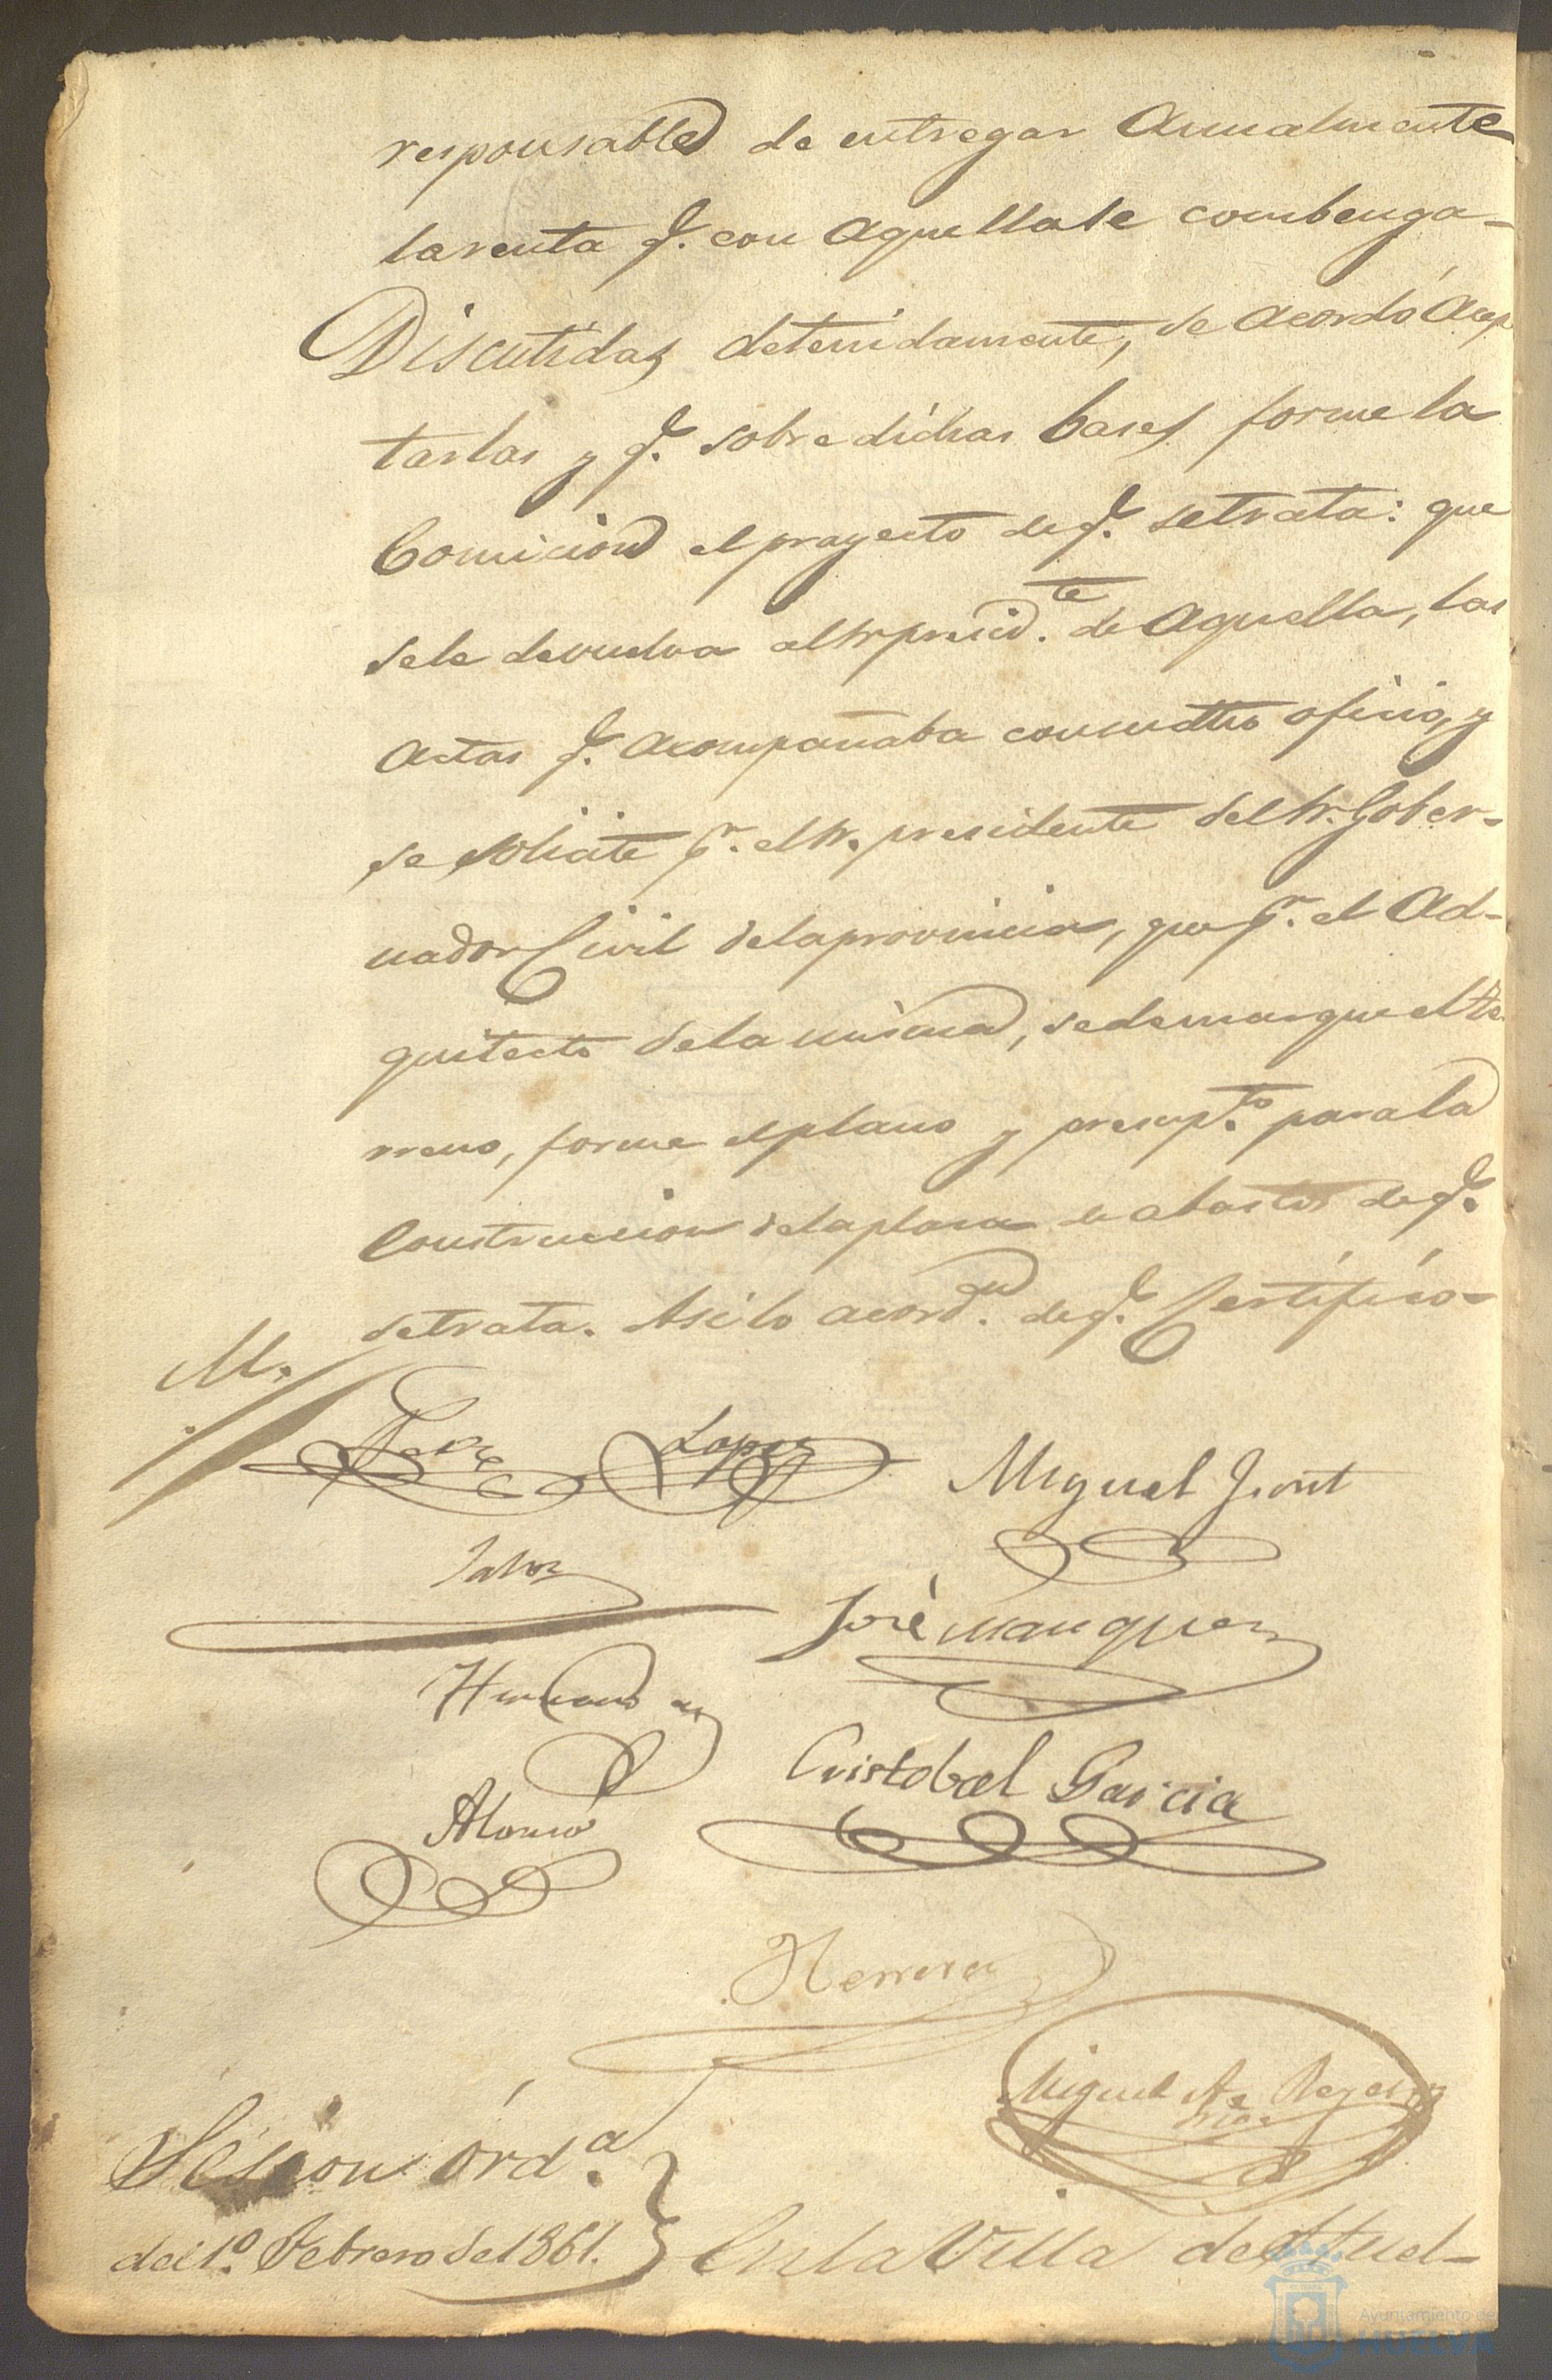 responsable de entregar Anualmente
la renta q.e con Aquella se combenga-
Discutidas detenidamente, se acordó Acep
tarlas y q.e sobre dichas bases forme la
Comicion el proyecto de q.e se trata: que
se le devuelva al Sr presid.te de Aquella, las
Actas q.e Acompañaba con oficio, y
se solicite p.r el Sr. presidente del Sr. Gober-
nador Civil de la provincia, que p.r el Ad-
quitecto de la misma, se demarque el te
rreno, forme el plano y presup.to para la
Construccion de la plasa de abastos de q.e
se trata. Asi lo acord.n de q.e Certifico-
M.
José Lopez
Miguel Font
José Marquez
Hernandez
Cristobal Garcia
Alonso
Herrera
Miguel
Sesion ord.a
del 1.o Febrero de 1861. } En la Villa de Huel-
Ayuntamiento de
HUELVA